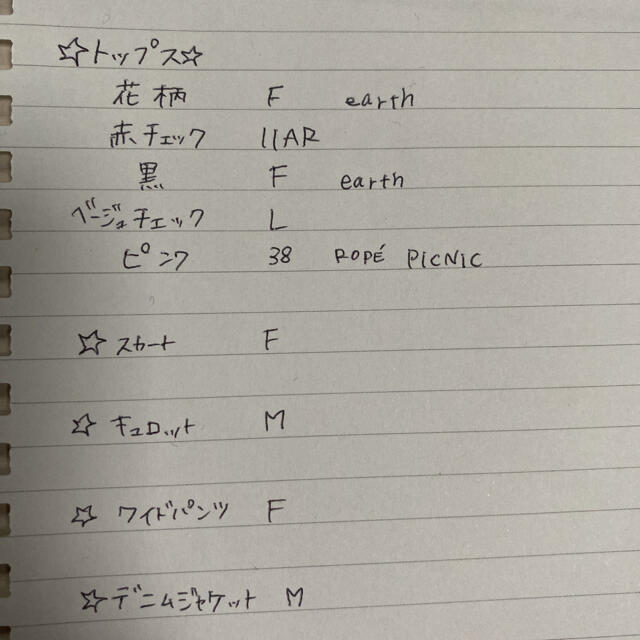 ☆トップス☆
花柄 F earth
赤チェック 11AR
黒 F earth
ベージュチェック L
ピンク 38 ROPÉ PICNIC
☆スカート F
☆キュロット M
☆ワイドパンツ F
☆デニムジャケット M